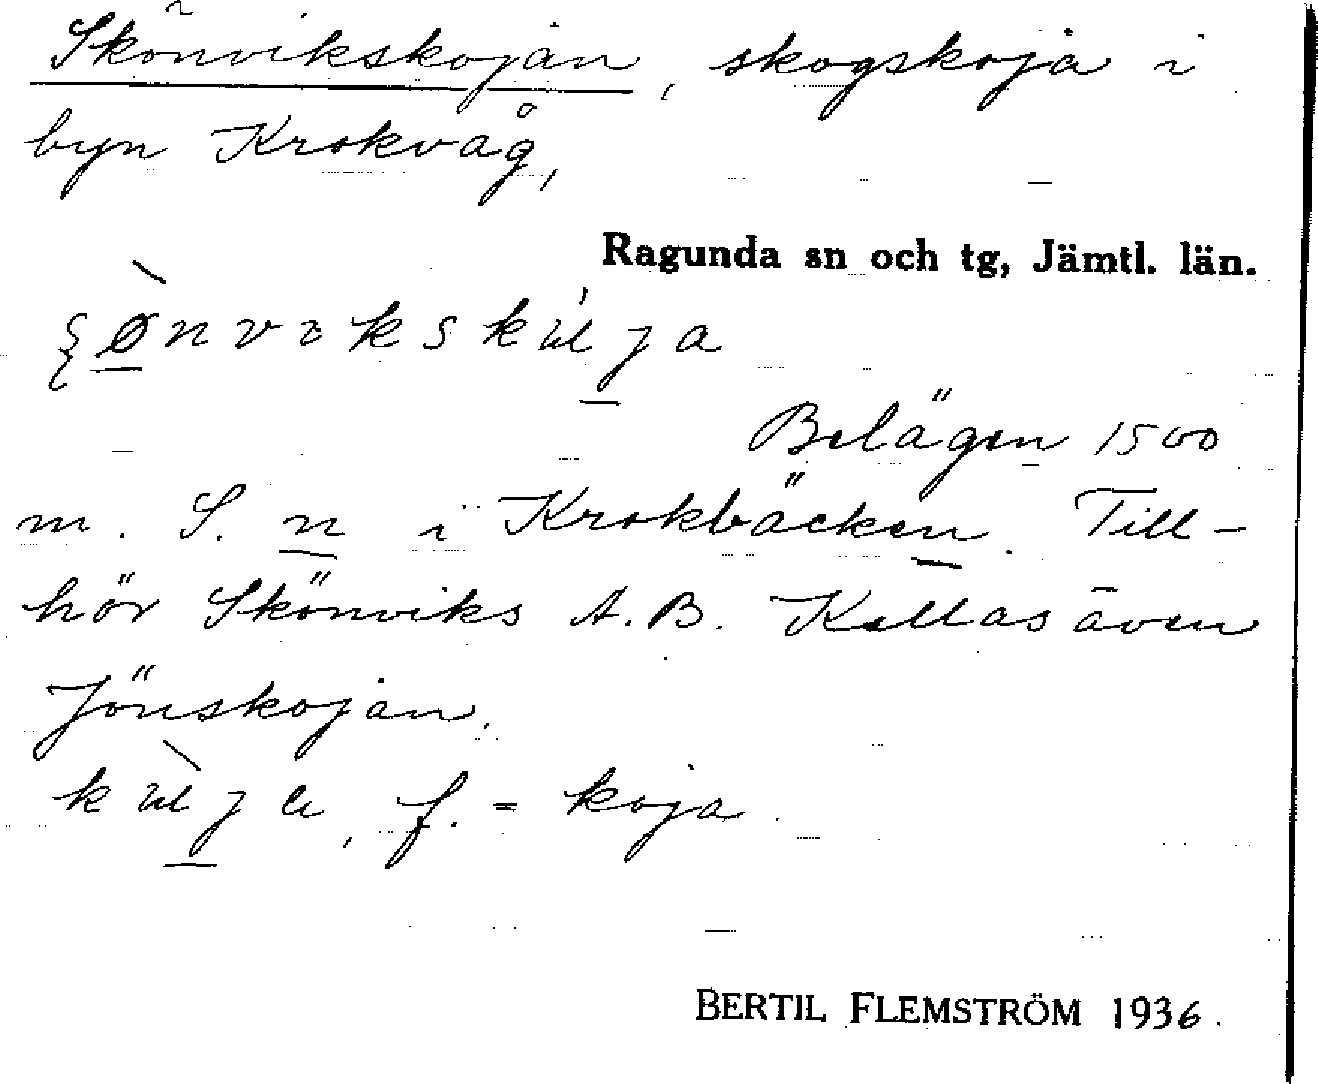 Skönvikskojan, skogskoja i
byn Krokvåg,
Ragunda sn och tg, Jämtl. län.
Belägen 1500
m. S. n i Krokbäcken. Till-
hör Skönviks A.B. Kallas även
Jönskojan.
f. = koja.
BERTIL FLEMSTRÖM 1936.